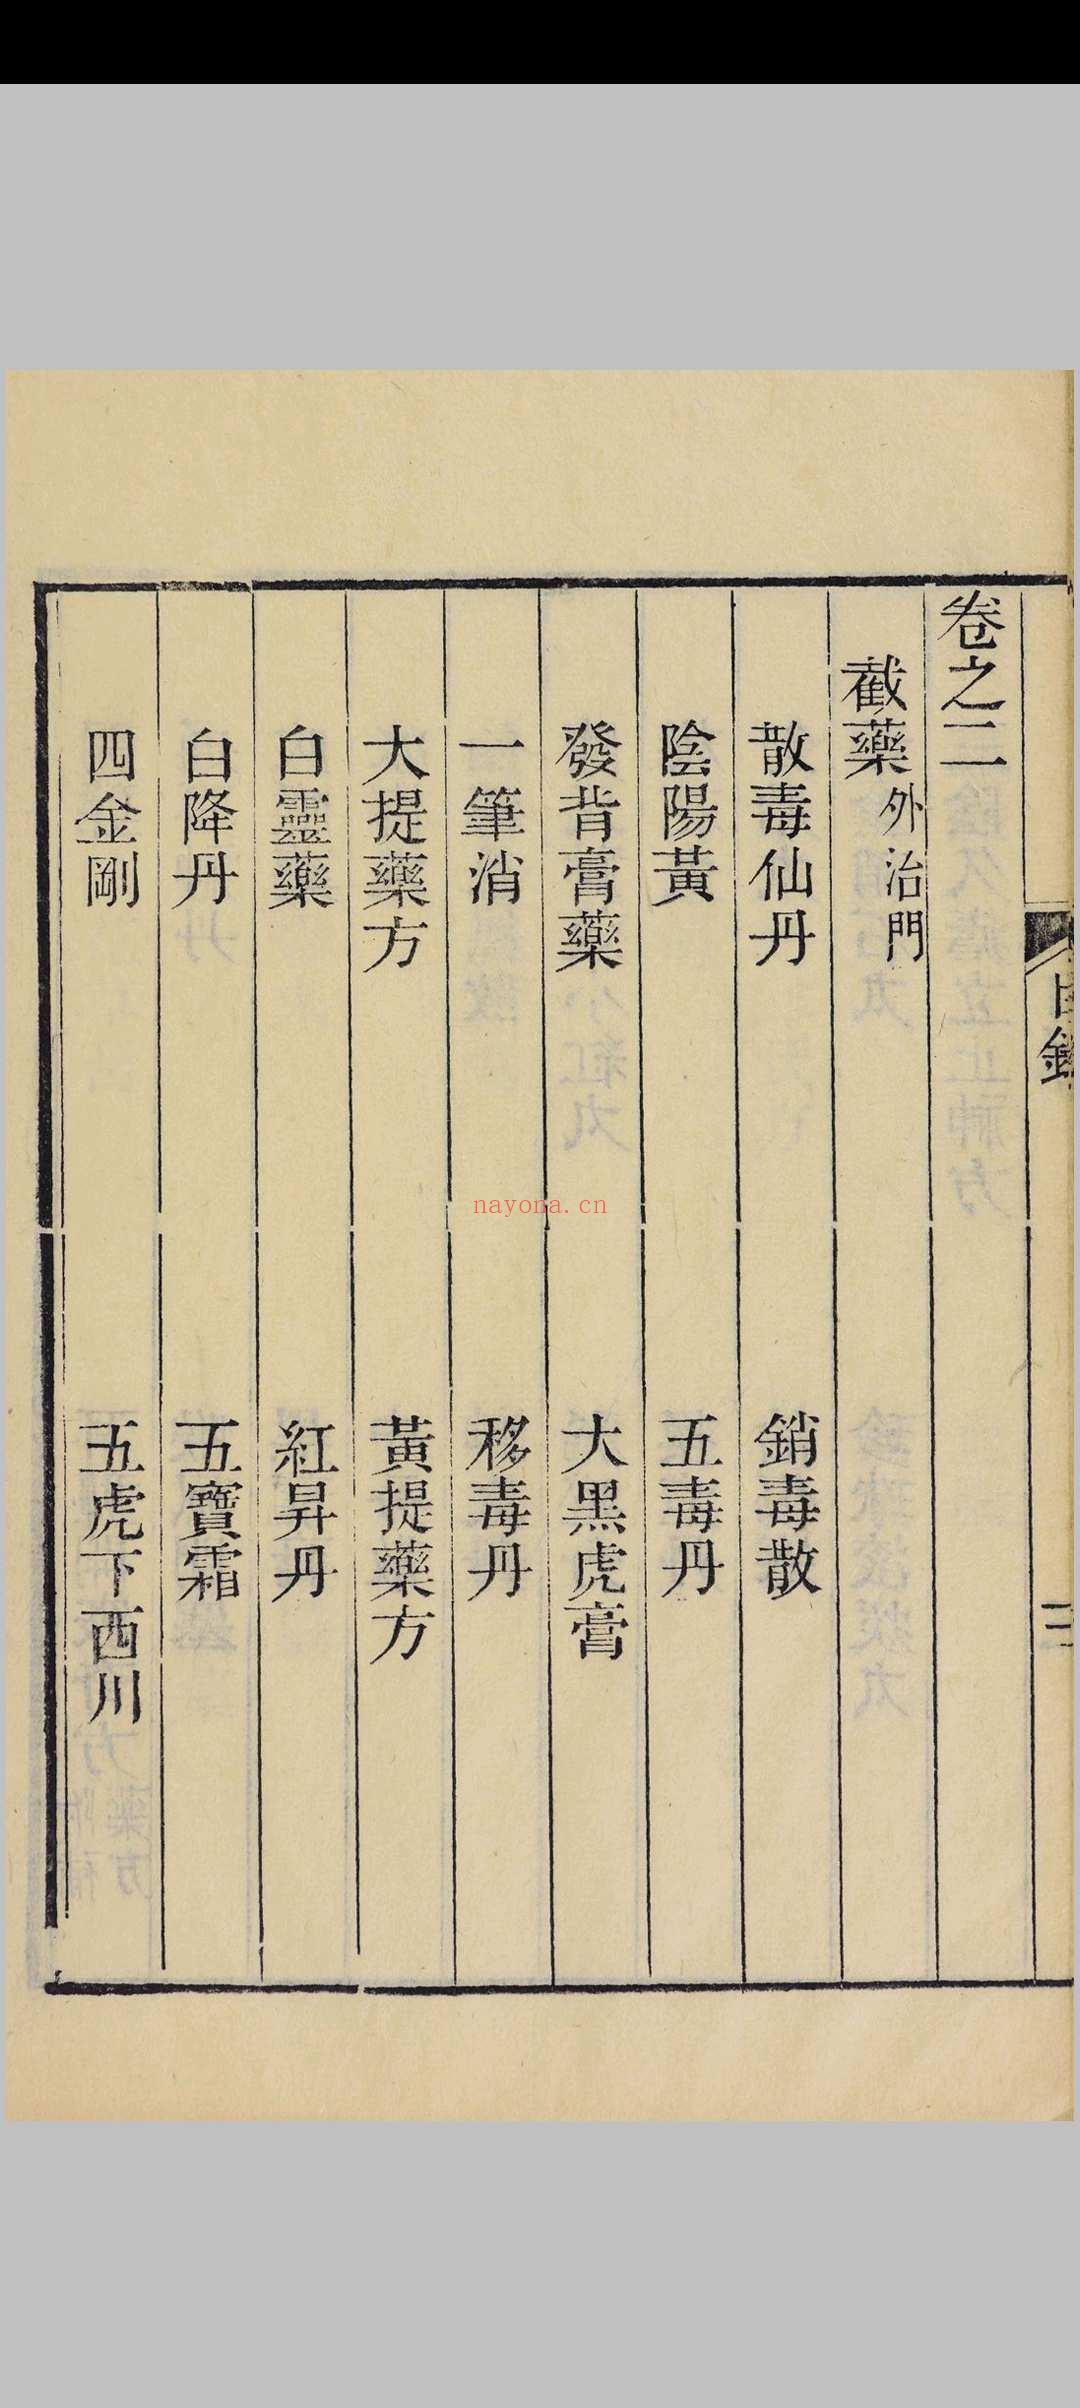 卷之二
截藥外治門
散毒仙丹
銷毒散
陰陽黃
五毒丹
發背膏藥
大黑虎膏
一筆消
移毒丹
大提藥方
黃提藥方
白靈藥
紅昇丹
白降丹
五寶霜
四金剛
五虎下西川
nayona.cn